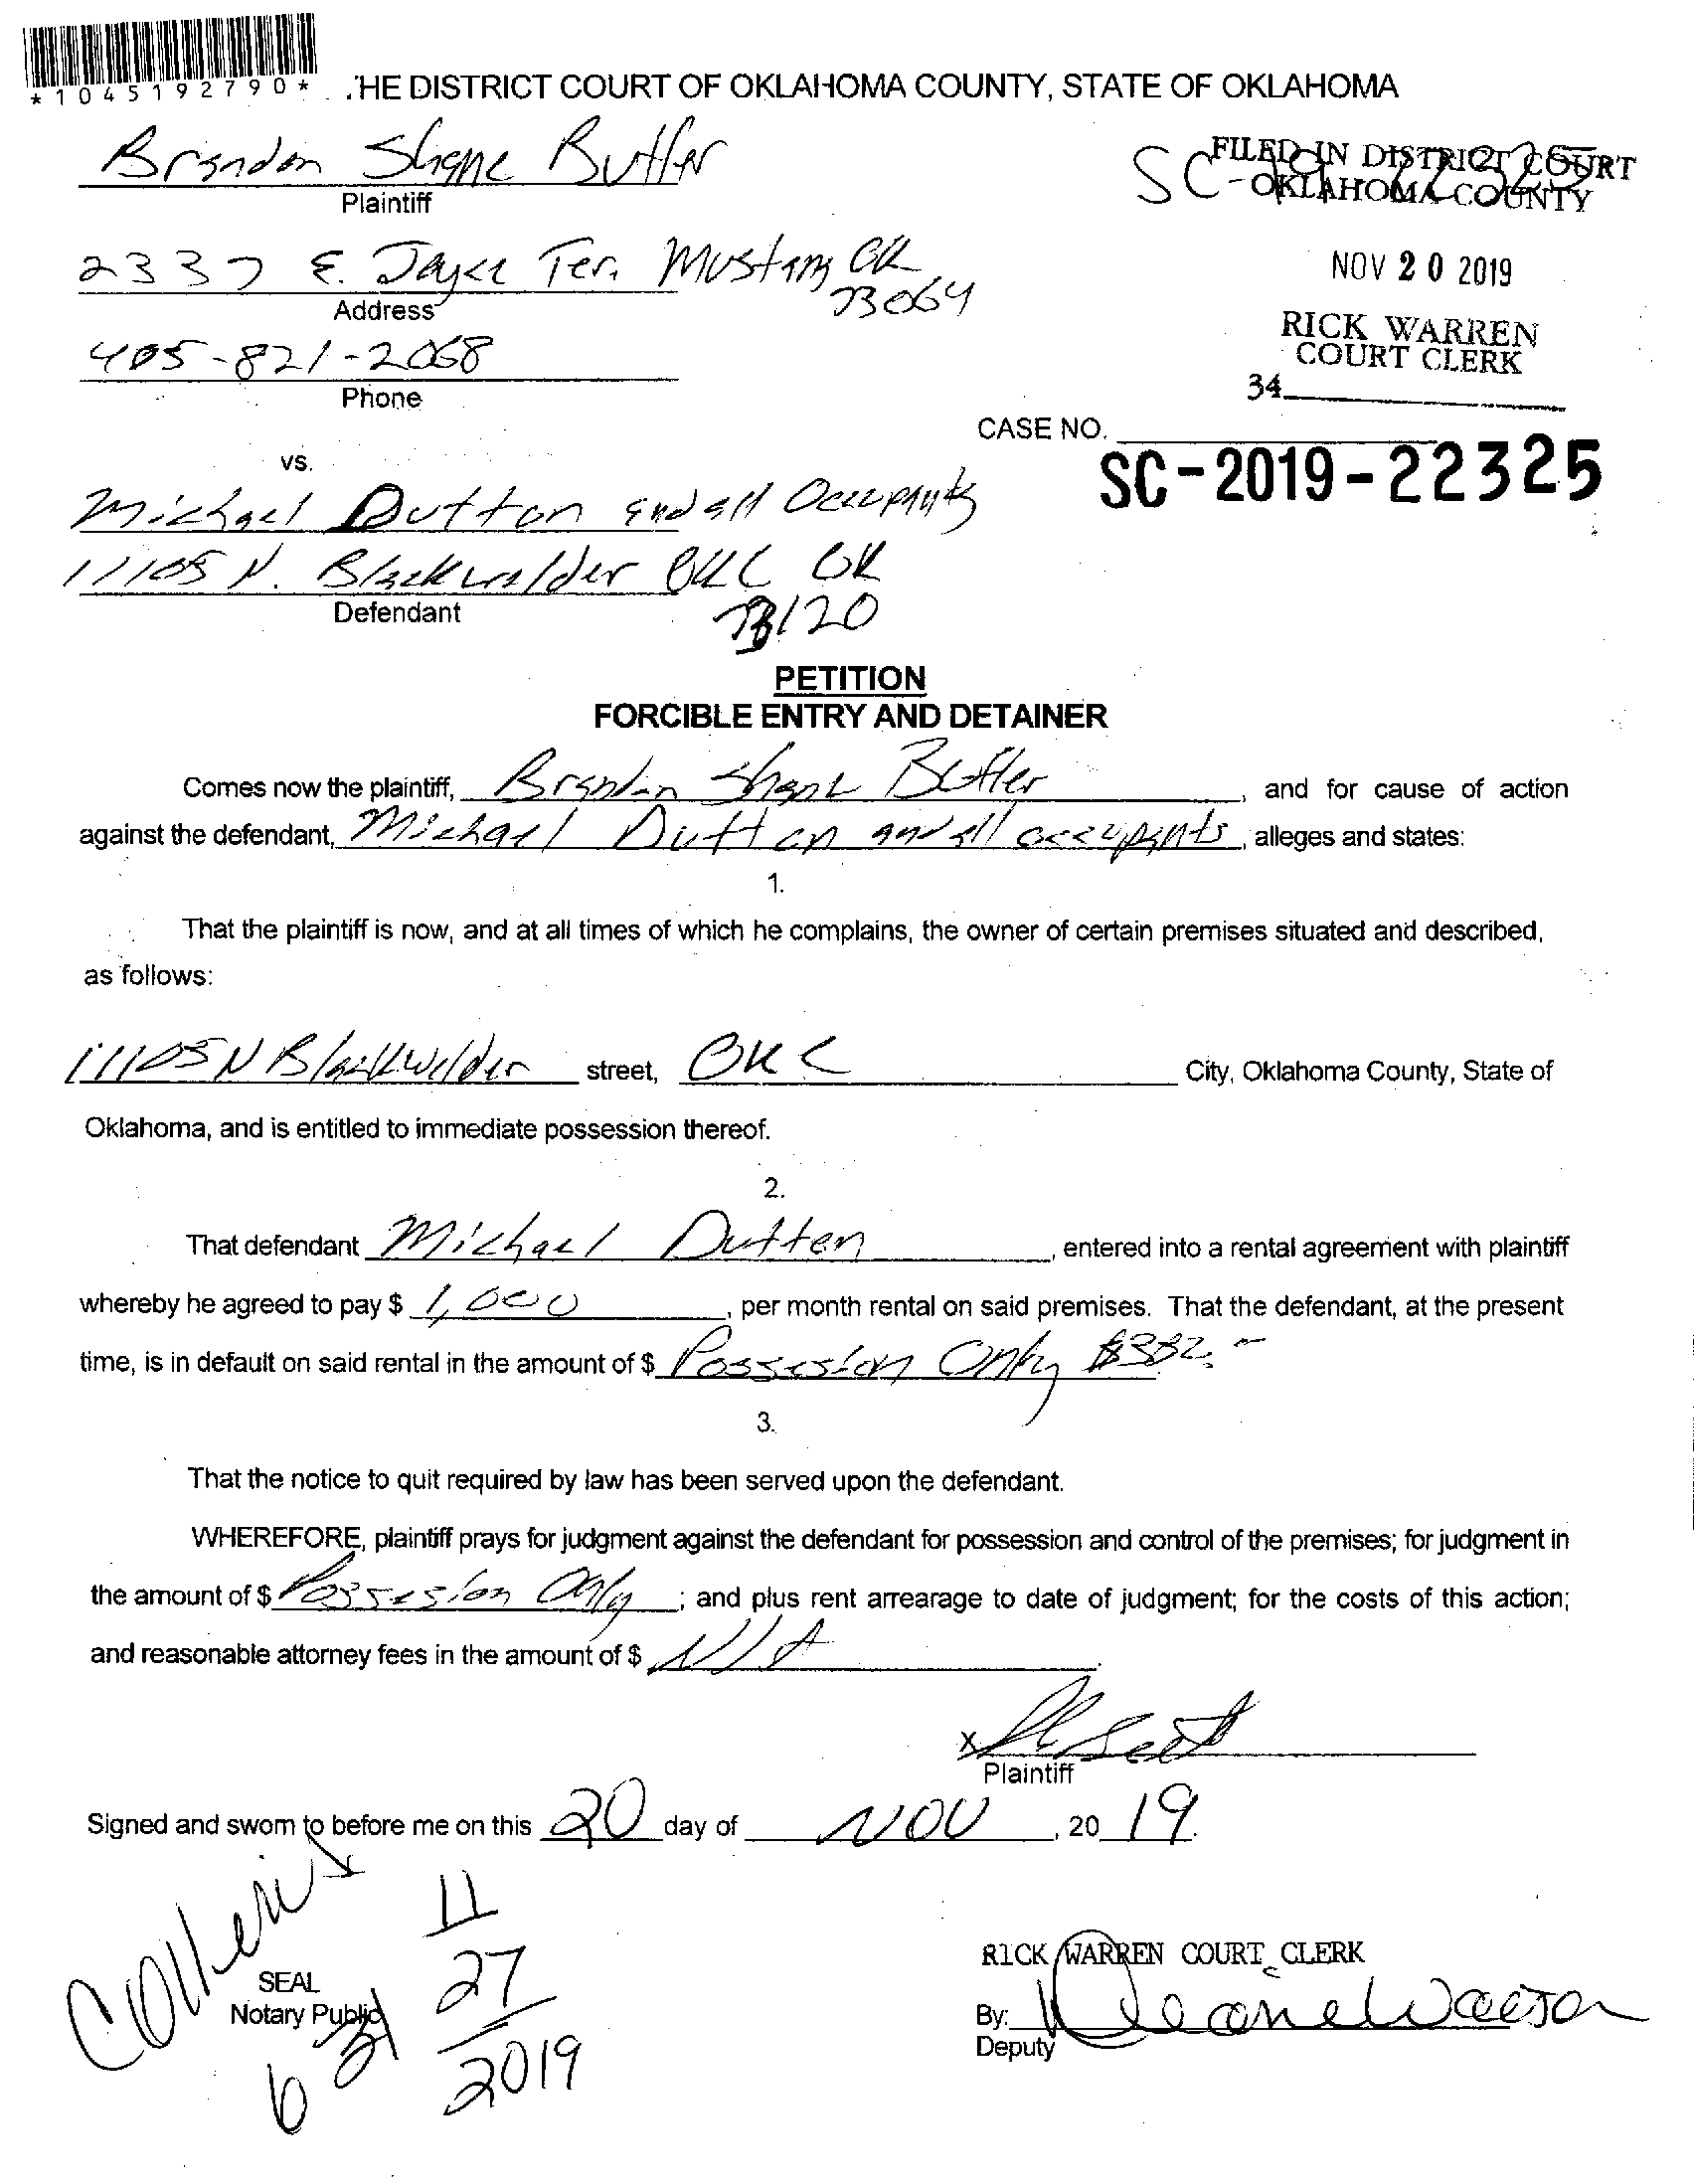 *1045192790*
THE DISTRICT COURT OF OKLAHOMA COUNTY, STATE OF OKLAHOMA
Brandon Shane Butler
Plaintiff
SC-19-22325
FILED IN DISTRICT COURT
OKLAHOMA COUNTY
2337 E. Jayce Ter. Mustang OK
73064
Address
NOV 20 2019
405-821-2068
Phone
RICK WARREN
COURT CLERK
34
CASE NO.
SC-2019-22325
vs.
Michael Dutton and all Occupants
11105 N. Blackwelder OKC OK
73120
Defendant
PETITION
FORCIBLE ENTRY AND DETAINER
Comes now the plaintiff, Brandon Shane Butler, and for cause of action
against the defendant, Michael Dutton and all occupants, alleges and states:
1.
That the plaintiff is now, and at all times of which he complains, the owner of certain premises situated and described,
as follows:
11105 N Blackwelder street, OKC City, Oklahoma County, State of
Oklahoma, and is entitled to immediate possession thereof.
2.
That defendant Michael Dutton, entered into a rental agreement with plaintiff
whereby he agreed to pay $ 1,000, per month rental on said premises. That the defendant, at the present
time, is in default on said rental in the amount of $ Possesion Only $382.-
3.
That the notice to quit required by law has been served upon the defendant.
WHEREFORE, plaintiff prays for judgment against the defendant for possession and control of the premises; for judgment in
the amount of $ Possesion Only; and plus rent arrearage to date of judgment; for the costs of this action;
and reasonable attorney fees in the amount of $ N/A.
X
Plaintiff
Signed and sworn to before me on this 20 day of NOV, 20 19.
11
27
2019
SEAL
Notary Public
RICK WARREN COURT CLERK
By:
Deputy